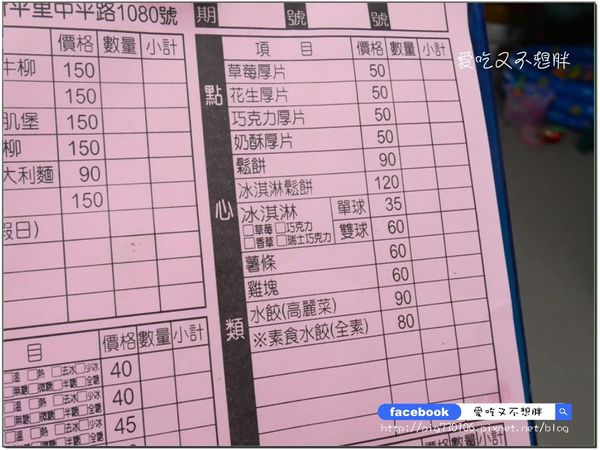 平里中平路1080號
期 號 號
價格 數量 小計
牛柳 150
150
肌堡 150
柳 150
大利麵 90
150
假日)
點心類
項 目 價格 數量 小計
草莓厚片 50
花生厚片 50
巧克力厚片 50
奶酥厚片 50
鬆餅 90
冰淇淋鬆餅 120
冰淇淋 單球 35
□草莓 □巧克力
□香草 □瑞士巧克力 雙球 60
薯條 60
雞塊 60
水餃(高麗菜) 90
※素食水餃(全素) 80
目 價格 數量 小計
□溫 □熱 □去冰 □少冰
□無糖 □微糖 □半糖 □全糖 40
□溫 □熱 □去冰 □少冰
□無糖 □微糖 □半糖 □全糖 40
□溫 □熱 □去冰 □少冰
□無糖 □微糖 □半糖 □全糖 45
價格 數量 小計
愛吃又不想胖
facebook 愛吃又不想胖
http://pig730106.pixnet.net/blog